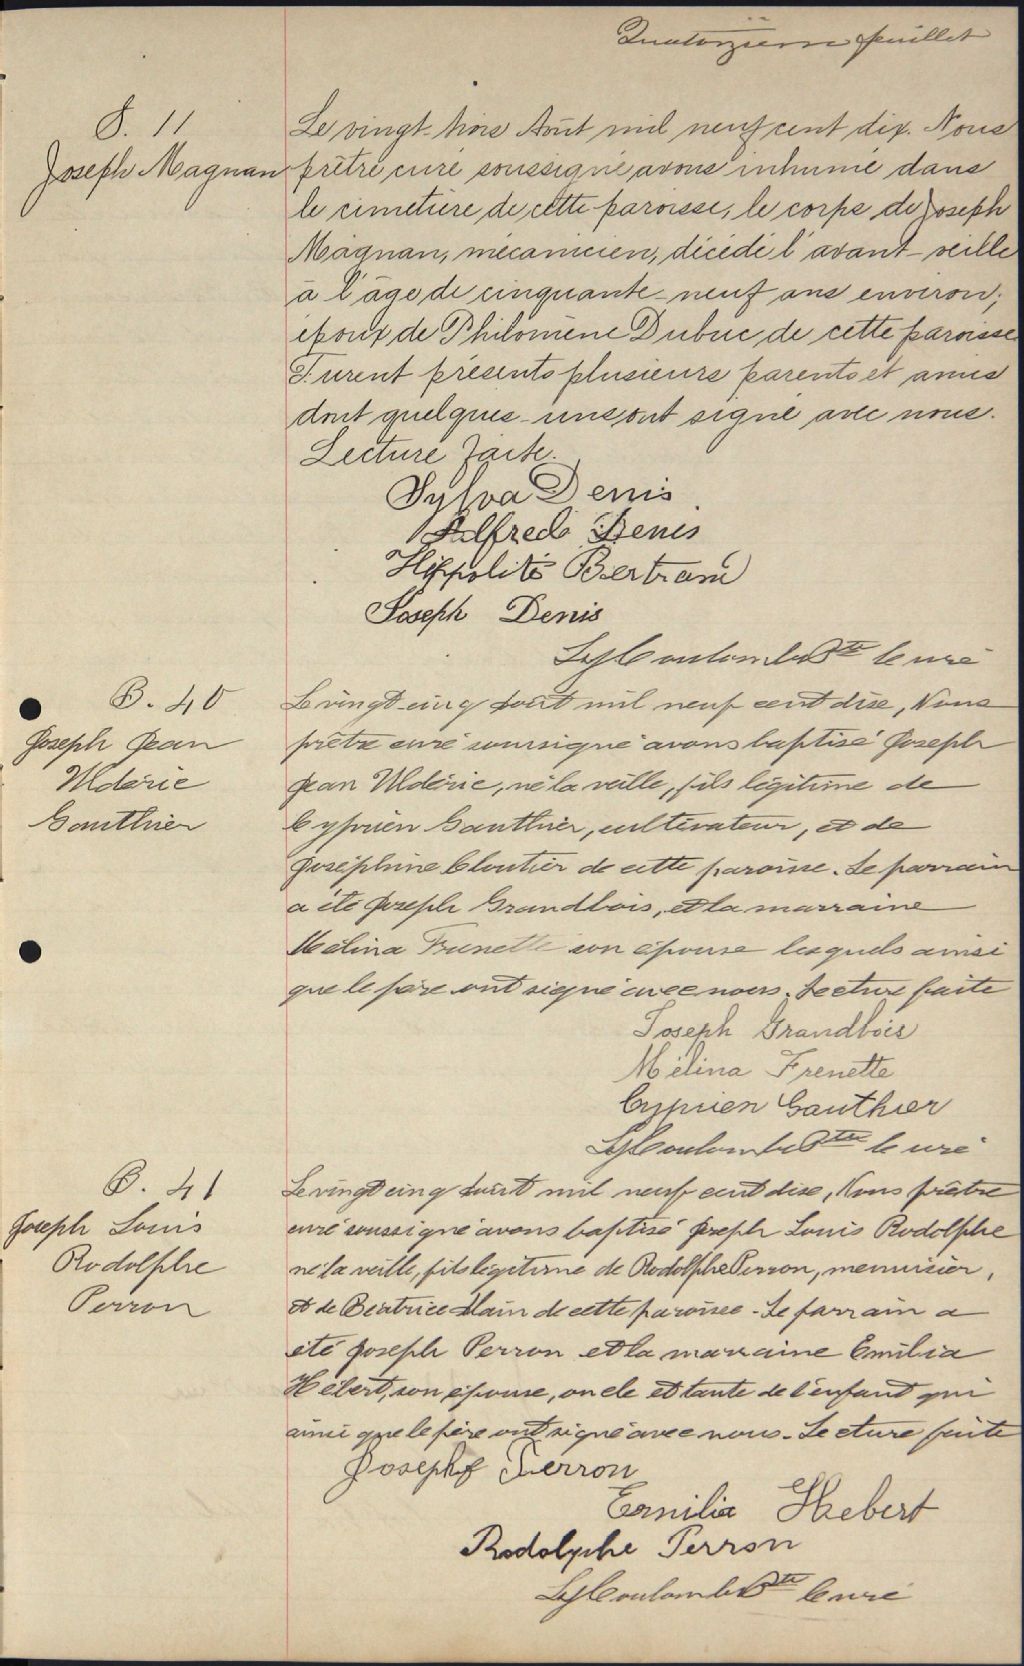 Quatorzième feuillet
S. 11
Joseph Magnan
Le vingt-trois Août mil neuf cent dix. Nous
prêtre curé soussigné avons inhumé dans
le cimetière de cette paroisse, le corps de Joseph
Magnan, mécanicien, décédé l'avant-veille
à l'âge de cinquante-neuf ans environ;
époux de Philomène Dubuc de cette paroisse
Furent présents plusieurs parents et amis
dont quelques-uns ont signé avec nous.
Lecture faite.
Sylva Denis
Alfred Denis
Hippolite Bertrand
Joseph Denis
Coulombe Ptre Curé
B. 40
Joseph Jean
Uldéric
Gauthier
Le vingt-cinq août mil neuf cent dise, Nous
prêtre curé soussigné avons baptisé Joseph
Jean Uldéric, né la veille, fils légitime de
Cyprien Gauthier, cultivateur, et de
Joséphine Cloutier de cette paroisse. Le parrain
a été Joseph Grandbois, et la marraine
Mélina Frenette son épouse lesquels ainsi
que le père ont signé avec nous. Lecture faite
Joseph Grandbois
Mélina Frenette
Cyprien Gauthier
Coulombe Ptre Curé
B. 41
Joseph Louis
Rodolphe
Perron
Le vingt cinq août mil neuf cent dise, Nous prêtre
curé soussigné avons baptisé Joseph Louis Rodolphe
né la veille, fils légitime de Rodolphe Perron, menuisier,
et de Béatrice Alain de cette paroisse. Le parrain a
été Joseph Perron et la marraine Emilia
Hébert, son épouse, oncle et tante de l'enfant qui
ainsi que le père ont signé avec nous. Lecture faite
Joseph Perron
Emilia Hebert
Rodolphe Perron
Coulombe Ptre Curé